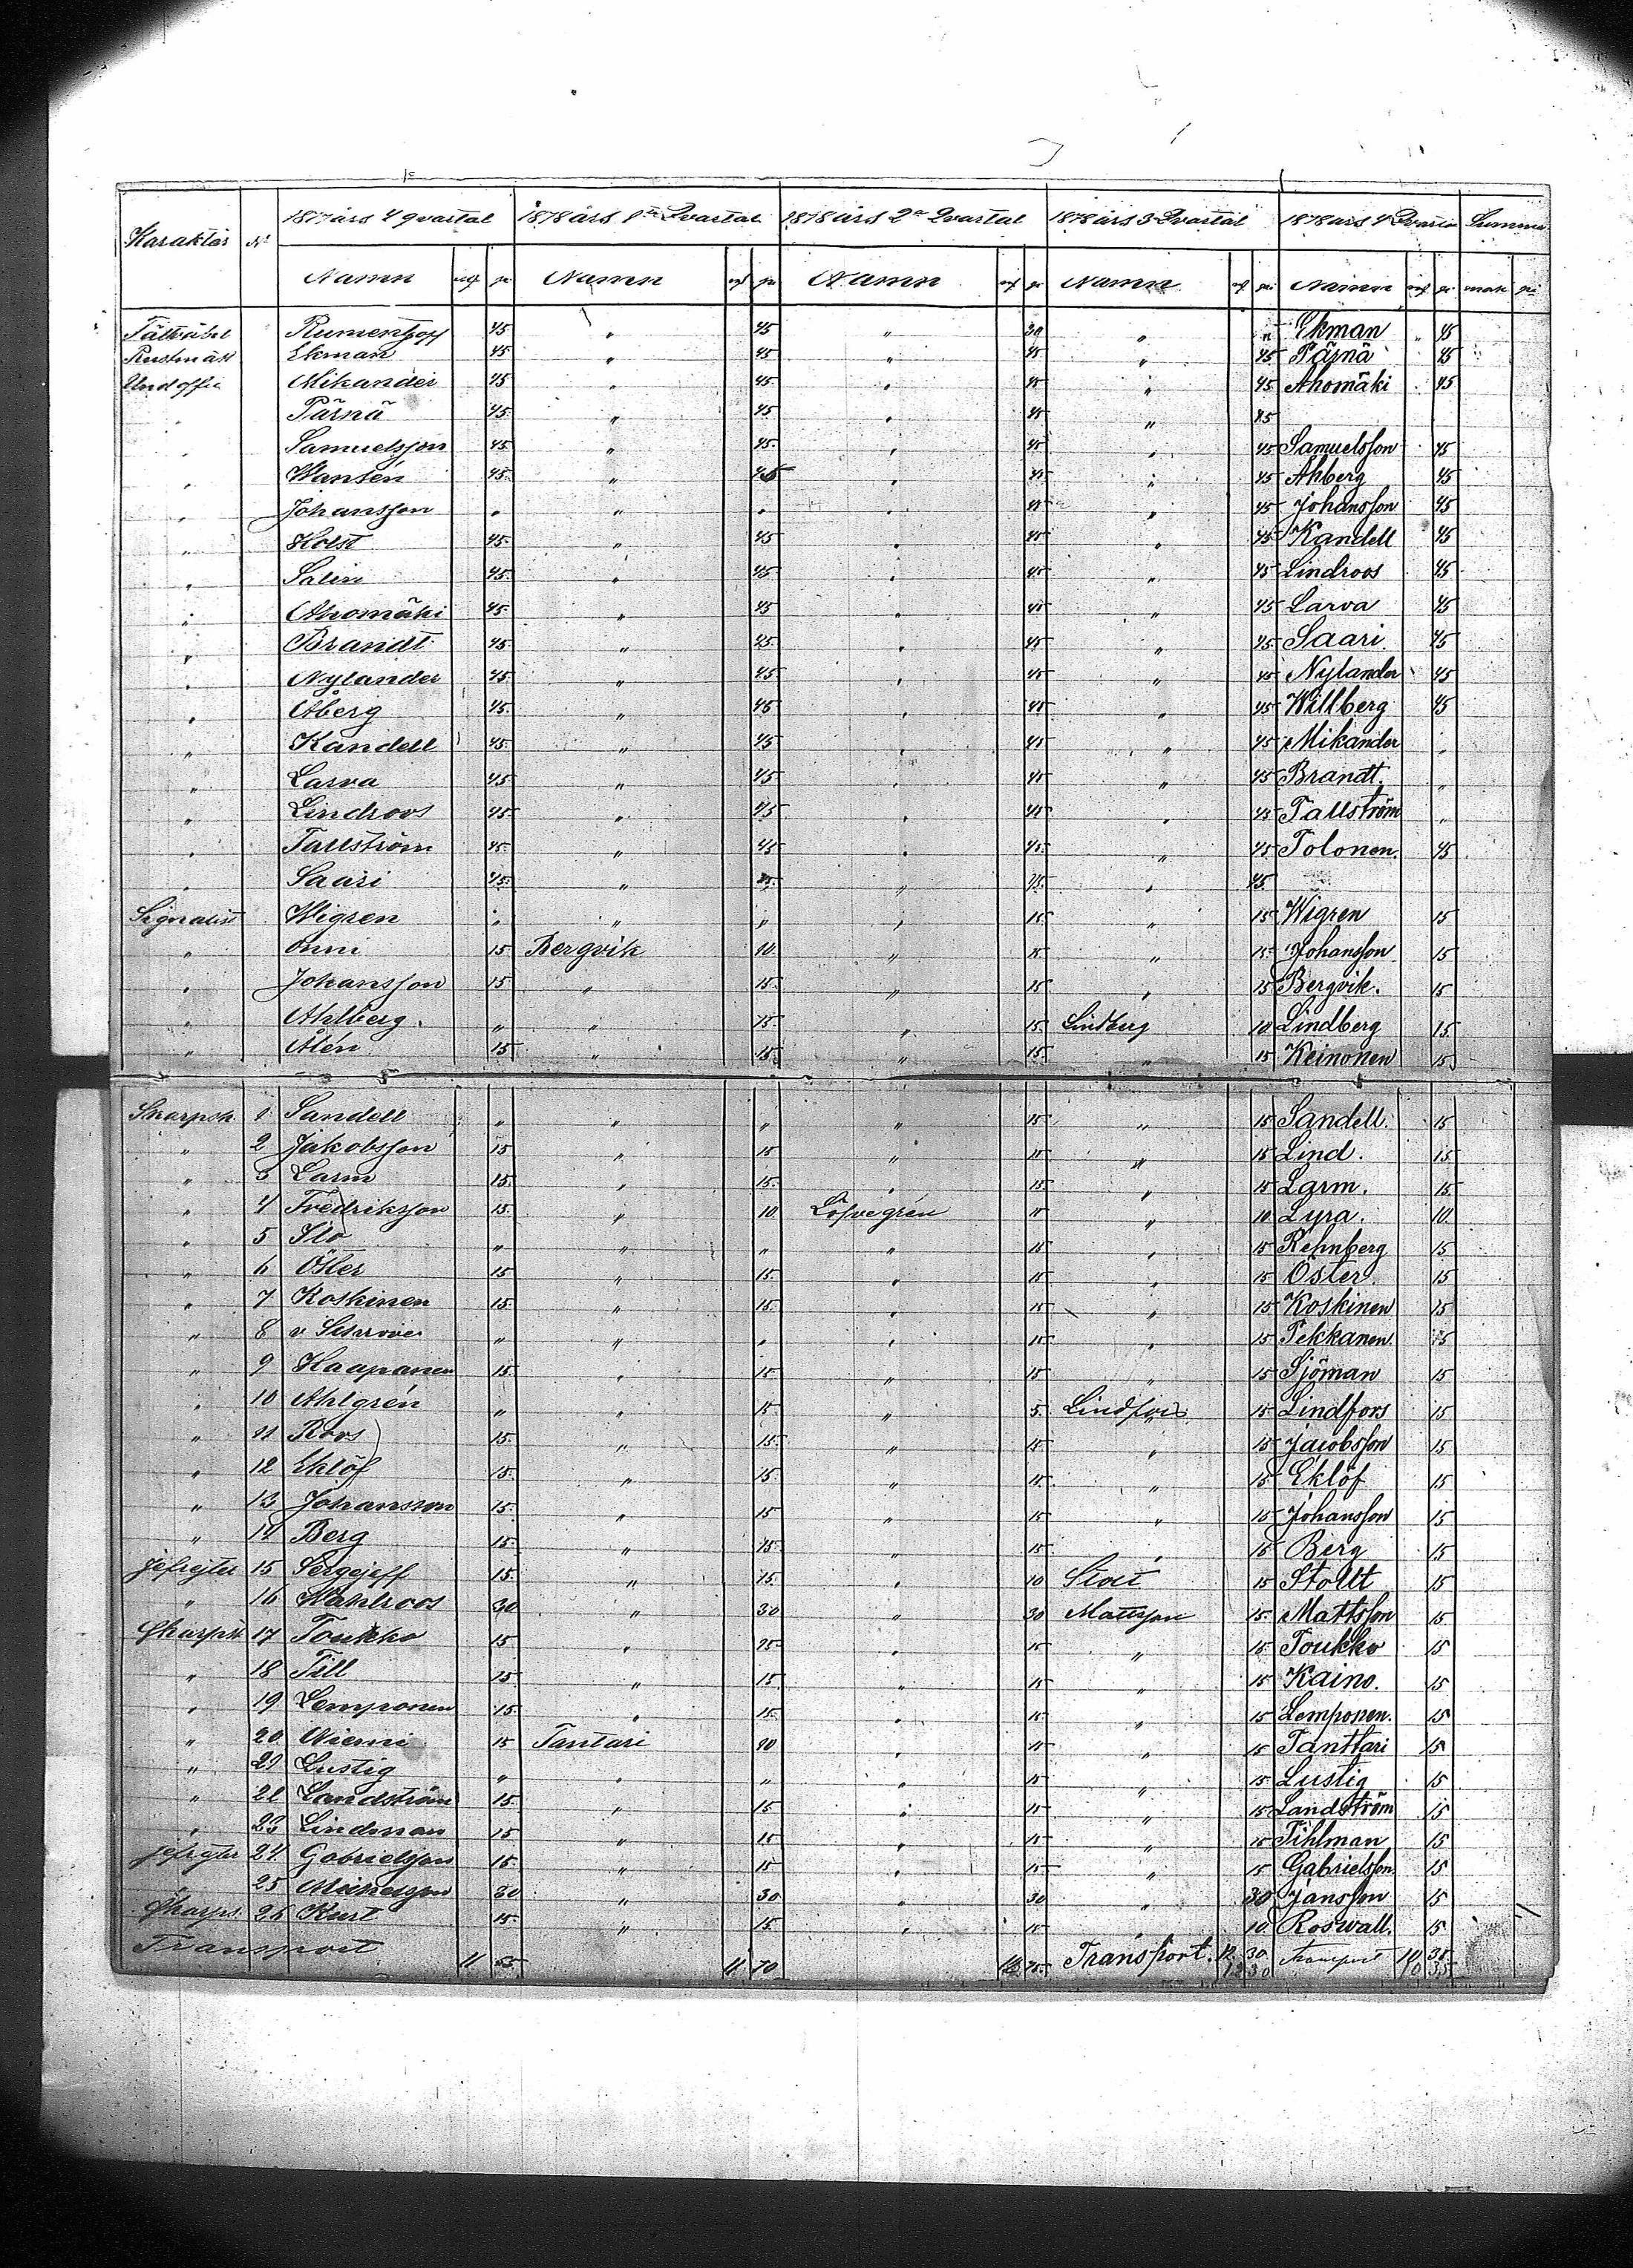 Karaktär № 1877 års 4 qvartal 1878 års 1sta Qvartal 1878 års 2a Qvartal 1878 års 3 Qvartal 1878 års 4 Qvartal Summa
Namn mf pi Namn mf pi Namn mf pi Namn mf pi Namn mf pi mark pi
Fältväbel 45 " 45 " 30 " " Ekman " 45
Rustmäst Ekman 45 " 45 " 45 " 45 Pärnä 45
Undoffic Mikander 45 " 45 " 45 " 45 Ahomäki 45
" Pärnä 45 " 45 " 45 " 45
" Samuelsson 45 " 45 " 45 " 45 Samuelsson 45
" Wansén 45 " 45 " 45 " 45 Ahberg 45
" Johansson " " " " 45 " 45 Johansson 45
" Holst 45 " 45 " 45 " 45 Kandell 45
" Salin 45 " 45 " 45 " 45 Lindroos 45
" Ahomäki 45 " 45 " 45 " 45 Larva 45
" Brandt 45 " 45 " 45 " 45 Saari 45
" Nylander 45 " 45 " 45 " 45 Nylander 45
" Åberg 45 " 45 " 45 " 45 Willberg 45
" Kandell 45 " 45 " 45 " 45 Mikander "
" Larva 45 " 45 " 45 " 45 Brandt. "
" Lindroos 45 " 45 " 45 " 45 Tallström "
" Tallström 45 " 45 " 45 " 45 Tolonen. 45
" Saari 45 " 45 " 45 " 45
Signalist Wigren " " " " 15 " 15 Wigren 15
" Onni 15 Bergvik 10 " 15 " 15 Johansson 15
" Johansson 15 " 15 " 15 " 15 Bergvik. 15
" Ahlberg. " " 15 " 15 Lindberg 10 Lindberg 15
" Alén 15 " 15 " 15 " 15 Keinonen 15
Skarpsk. 1 Sandell " " " " 15 " 15 Sandell. 15
" 2 Jakobsson 15 " 15 " 15 " 15 Lind. 15
" 3 Larm 15 " 15 " 15 " 15 Larm. 15
" 4 Fredriksson 15 " 10 Löfvegrén 15 " 10 Lyra. 10
" 5 Ilo " " " " 15 " 15 Rehnberg 15
" 6 Öster 15 " 15 " 15 " 15 Öster. 15
" 7 Koskinen 15 " 15 " 15 " 15 Koskinen 15
" 8 " " " " 15 " 15 Pekkanen. 15
" 9 Haapanen 15 " 15 " 15 " 15 Sjöman 15
" 10 Ahlgrén " " 15 " 5 Lindfors 15 Lindfors 15
" 11 Roos 15 " 15 " 15 " 15 Jacobsson 15
" 12 Eklöf 15 " 15 " 15 " 15 Eklöf 15
" 13 Johansson 15 " 15 " 15 " 15 Johansson 15
" 14 Berg 15 " 15 " 15 " 15 Berg 15
Jefrejter 15 Sergejeff 15 " 15 " 10 Stolt 15 Stollt 15
" 16 Wahlroos 30 " 30 " 30 Mattsson 15 Mattsson 15
Skarpsk 17 Toukko 15 " 15 " 15 " 15 Toukko 15
" 18 Till 15 " 15 " 15 " 15 Kaino. 15
" 19 Lemponen 15 " 15 " 15 " 15 Lemponen. 15
" 20 Niemi 15 Tantari 10 " 15 " 15 Tanttari 15
" 21 Lustig " " " " 15 " 15 Lustig 15
" 22 Landström 15 " 15 " 15 " 15 Landström 15
" 23 Lindman 15 " 15 " 15 " 15 Tihlman 15
Jefrejter 24 Gabrielsson 15 " 15 " 15 " 15 Gabrielsson 15
" 25 Mickelsson 30 " 30 " 30 " 30 Jansson 15
Skarps. 26 Kurt 15 " 15 " 15 " 10 Roswall. 15
Transport 11 55 11 70 75 Transport. 12 30 Transport 10 35
12 30 10 35